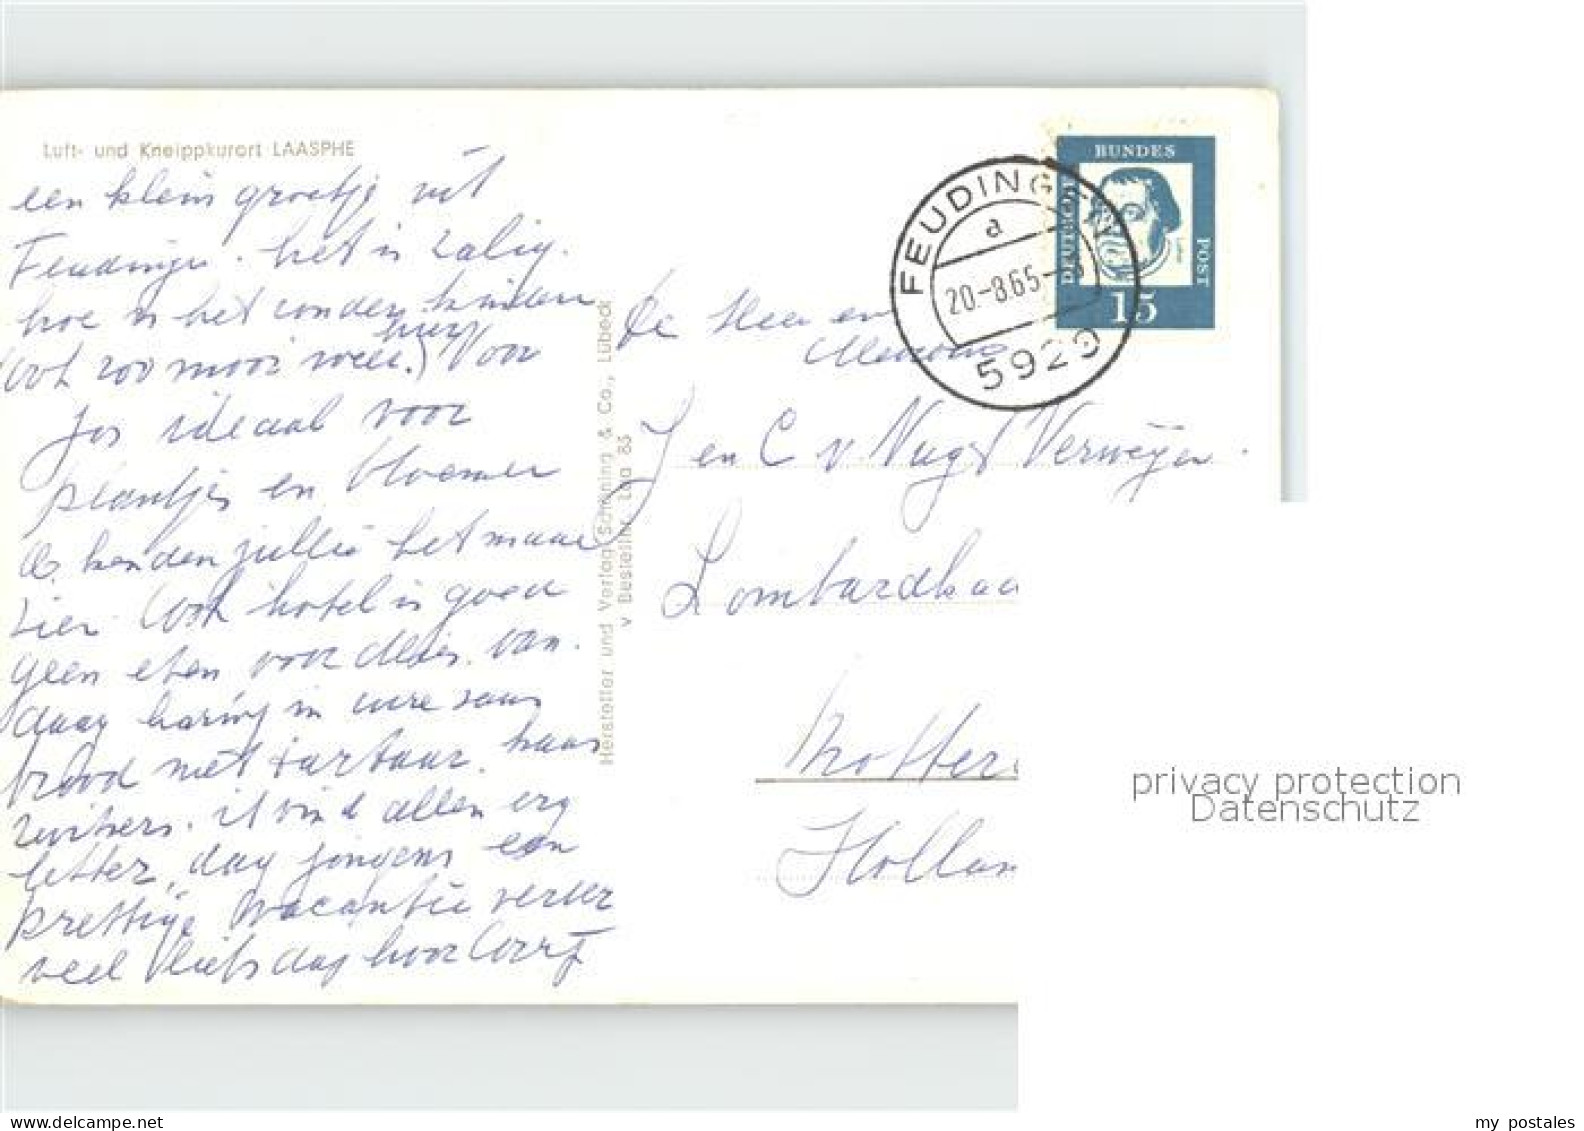 Luft- und Kneippkurort LAASPHE
een klein groetje uit
Feudingen. het is zalig.
hoe is het zonder kinderen
(ook zoo mooi weer.) hier Voor
Jos ideaal voor
plantjes en bloemen
O. hadden jullie het maar
zien. Ook hotel is goed
geen eten voor van.
daag haring in zure saus
brood met tartaar. kaas
zwitsers. ik vind alleen erg
letter, dag jongens een
prettige vacantie verder
veel liefs dag hoor Corrf
Hersteller und Verlag Schöning & Co., Lübeck
v Besteller Laa 85
BUNDES
DEUTSCHE
POST
Luther
15
FEUDINGEN
a
20.-8.65-
5929
De Heer en
Mevrouw
J en C v. Vugt Verweijen.
Lombardkaa
Rotter
Hollan
privacy protection
Datenschutz
my postales